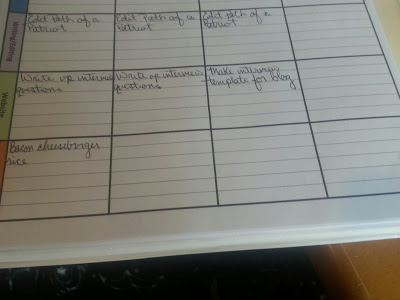 Writing/Editing
Edit Path of a
Patriot
Edit Path of a
Patriot
Edit Path of a
Patriot
Website
Write up interview
questions
Write up interview
questions
Make interview
template for blog
Bacon cheeseburger
rice